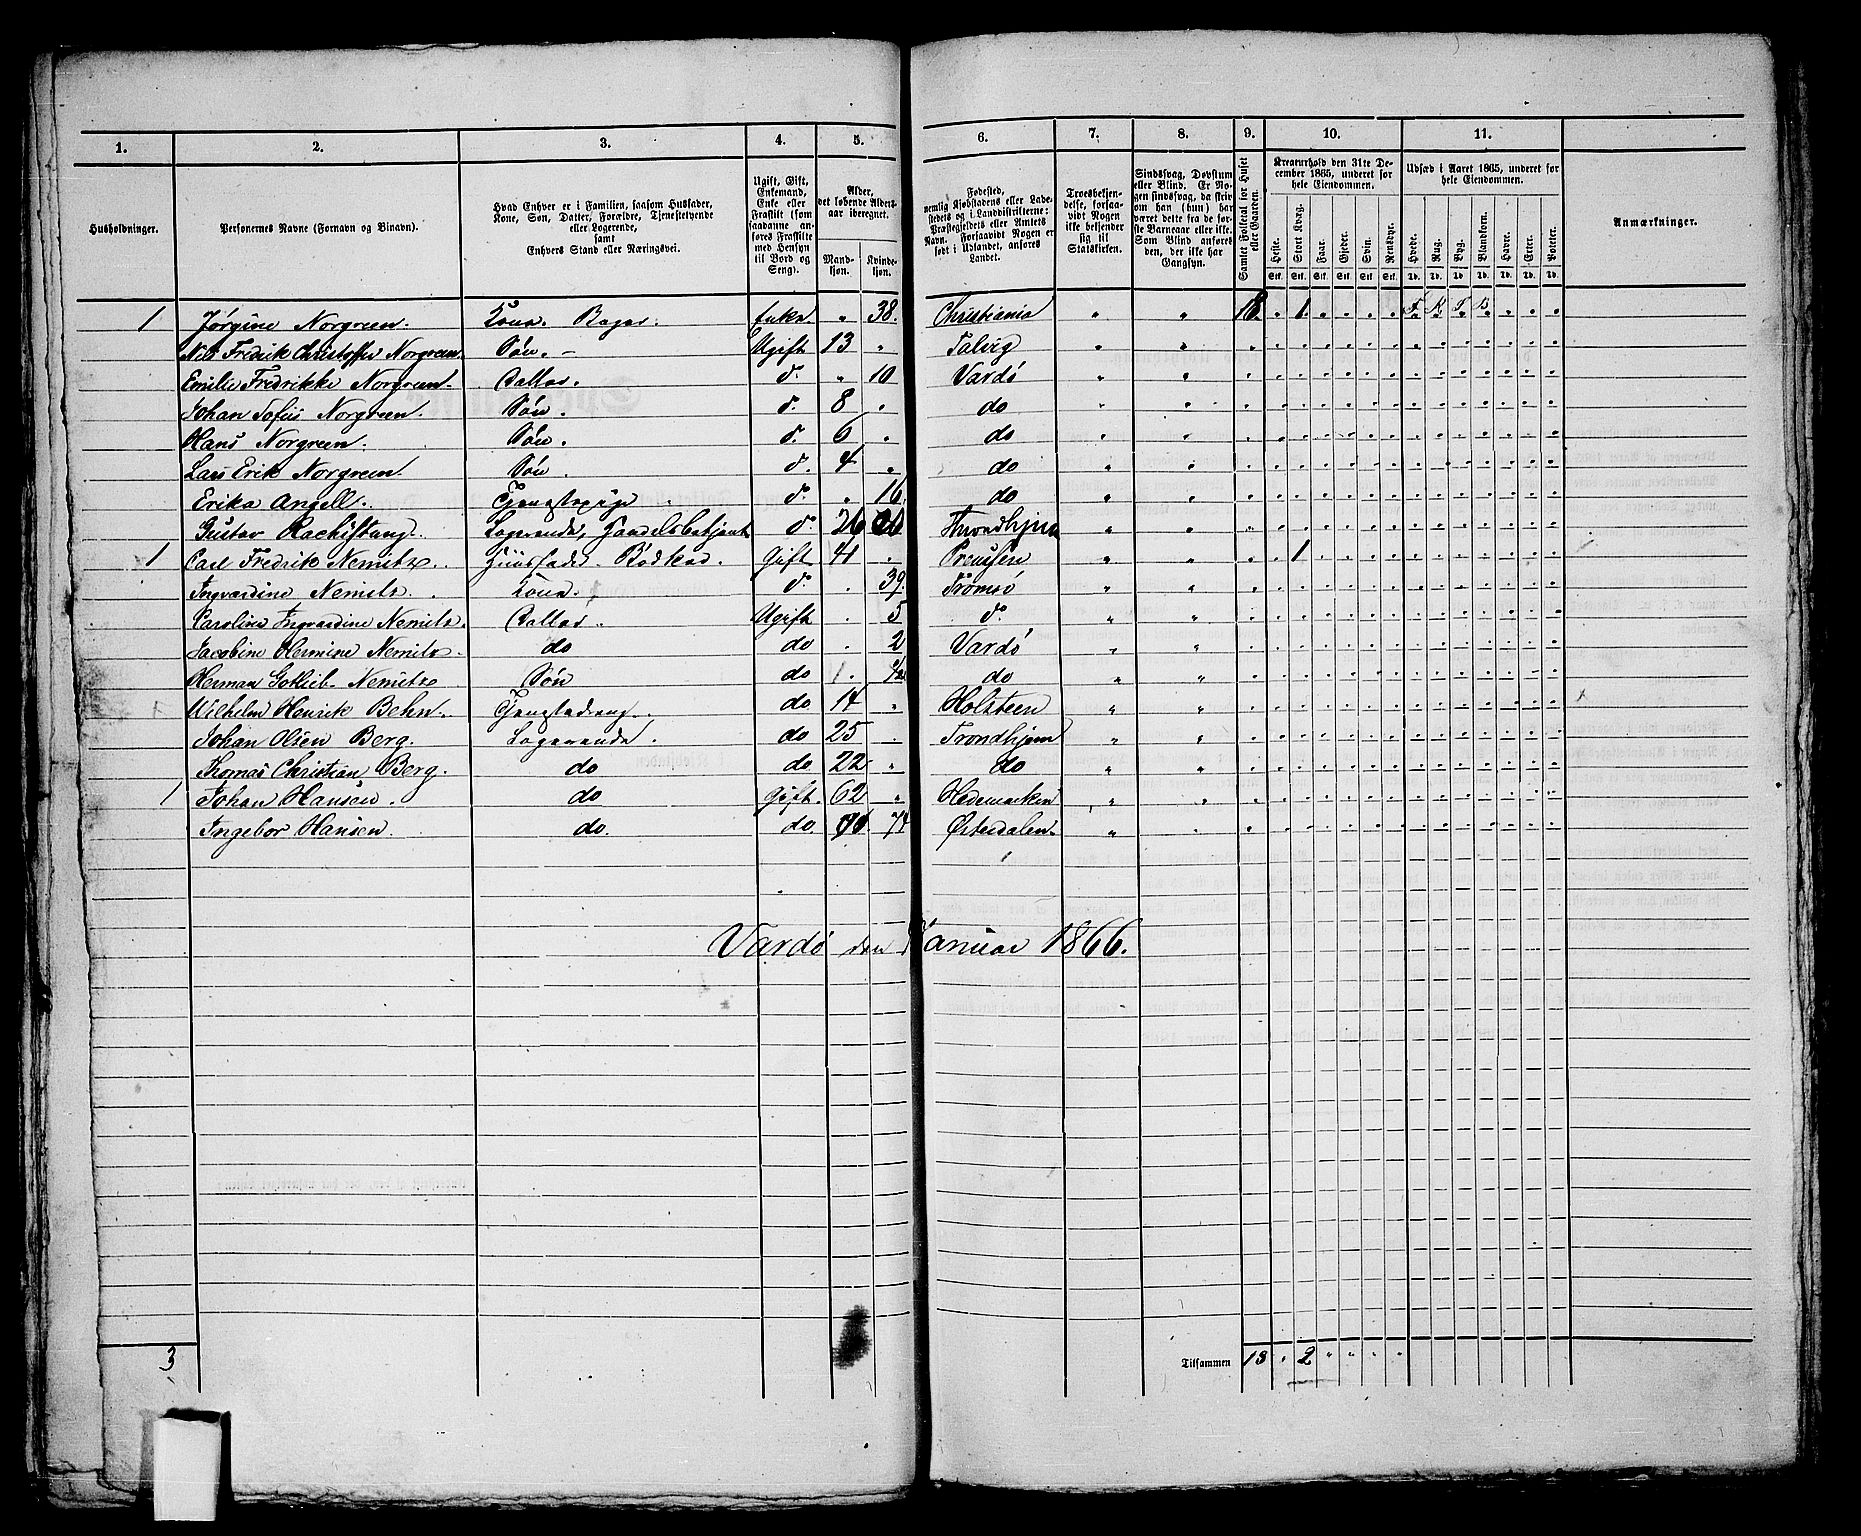 1. 2. 3. 4. 5. 6. 7. 8. 9. 10. 11.
Husholdninger.
Personernes Navne (Fornavn og Binavn).
Hvad Enhver er i Familien, saasom Husfader,
Kone, Søn, Datter, Forældre, Tjenestetyende
eller Logerende,
samt
Enhvers Stand eller Næringsvei.
Ugift, Gift,
Enkemand,
Enke eller
Fraskilt (som
saadanne an-
føres Fraskilte
med Hensyn
til Bord og
Seng).
Alder,
det løbende Alders-
aar iberegnet.
Mand-
kjøn.
Kvinde-
kjøn.
Fødested,
nemlig Kjøbstadens eller Lade-
stedets og i Landdistrikterne:
Præstegjeldets eller Amtets
Navn. Forsaavidt Nogen er
født i Udlandet, anføres
Landet.
Troesbekjen-
delse, forsaa-
vidt Nogen
ikke bekjender
sig til
Statskirken.
Sindssvag, Døvstum
eller Blind. Er No-
gen sindssvag, da skriv
om han (hun) har
været dette fra de før-
ste Barneaar eller ikke.
Som Blind anføres
den, der ikke har
Gangsyn.
Samlet Folketal for Huset
eller Gaarden.
Kreaturhold den 31te De-
cember 1865, underet for
hele Eiendommen.
Heste. Stort Kvæg. Faar. Gjeder. Svin. Rensdyr.
Stk. Stk. Stk. Stk. Stk. Stk.
Udsæd i Aaret 1865, underet for
hele Eiendommen.
Hvede. Rug. Byg. Blandkorn. Havre. Erter. Poteter.
Td. Td. Td. Td. Td. Td. Td.
Anmærkninger.
1 Jørgine Norgreen. Kone. Bager. Enke. " 38. Christiania " " 18. " 1.
Nils Fredrik Christoffer Norgreen. Søn. - Ugift 13 " Talvig " "
Emilie Fredrikke Norgreen. Datter. d. " 10 Vardö " "
Johan Sofus Norgreen. Søn. d. 8 " do " "
Hans Norgreen. Søn. d. 6 " do " "
Lars Erik Norgreen Søn. d. 4 " do " "
Erika Angell. Tjenestepige. d. " 16. do " "
Gustav Logerende, Handelsbetjent d. 26 Throndhjem " "
1 Carl Fredrik Nemitz. Huusfader. Bødker. Gift 41 " Preussen " " 1
Ingvardine Nemitz. Kone. d. " 39. Tromsö " "
Caroline Ingvardine Nemitz. Datter. Ugift " 5 d. " "
Jacobine Hermine Nemitz. do do " 2 Vardö " "
Herman Gotlieb Nemitz Søn do do " "
Wilhelm Henrik Behn. Tjenestedreng. do 14 " Holsteen " "
Johan Olsen Berg. Logerende. do 25 " Trondhjem " "
Thomas Christian Berg. do do 22 " do " "
1 Johan Hansen. do Gift. 62 " Hedemarken " "
Ingebor Hansen. do. do 74 Østerdalen. " "
Vardö den Januar 1866.
3 Tilsammen 18 " 2 " " " "